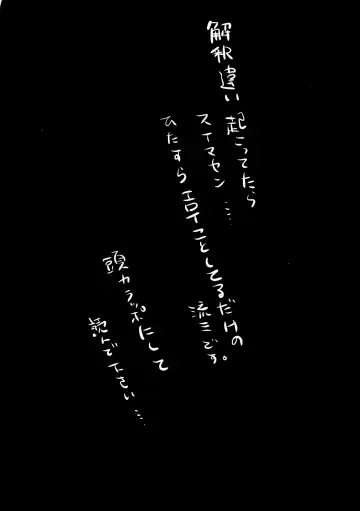 解釈違い起こってたら
スイマセン….
ひたすらエロイことしてるだけの
流三です。
頭カラッポにして
読んで下さい….